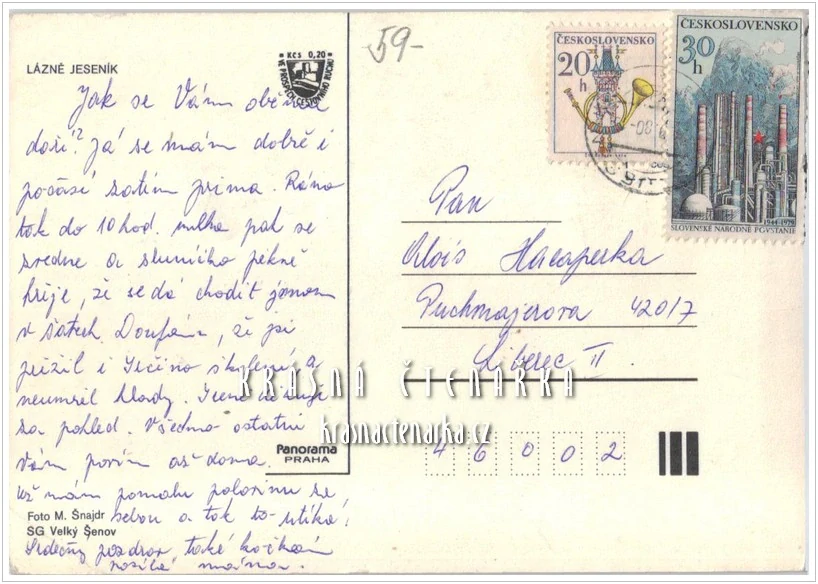 LÁZNĚ JESENÍK
Kčs 0,20
VE PROSPĚCH CESTOVNÍHO RUCHU
Jak se Vám oběma
daří? Já se mám dobře i
počasí zatím prima. Ráno
tak do 10 hod. mlha pak se
zvedne a sluníčko pěkně
hřije, že se dá chodit jenom
v šatech. Doufám, že jsi
přežil i Jičíno školení a
neumřel hlady. Irena děkuje
za pohled. Všechno ostatní
Vám povím až doma.
Už mám pomalu polovinu za
sebou a tak to utíká!
Srdečný pozdrav, také kočkám
posílá máma.
Foto M. Šnajdr
SG Velký Šenov
Panorama
PRAHA
59-
ČESKOSLOVENSKO
20 h
ČESKOSLOVENSKO
30 h
1944-1979
SLOVENSKÉ NÁRODNÉ POVSTANIE
Pan
Alois
Puchmajerova 420/7
Liberec II
46002
KRÁSNÁ ČTENÁŘKA
krasnactenarka.cz